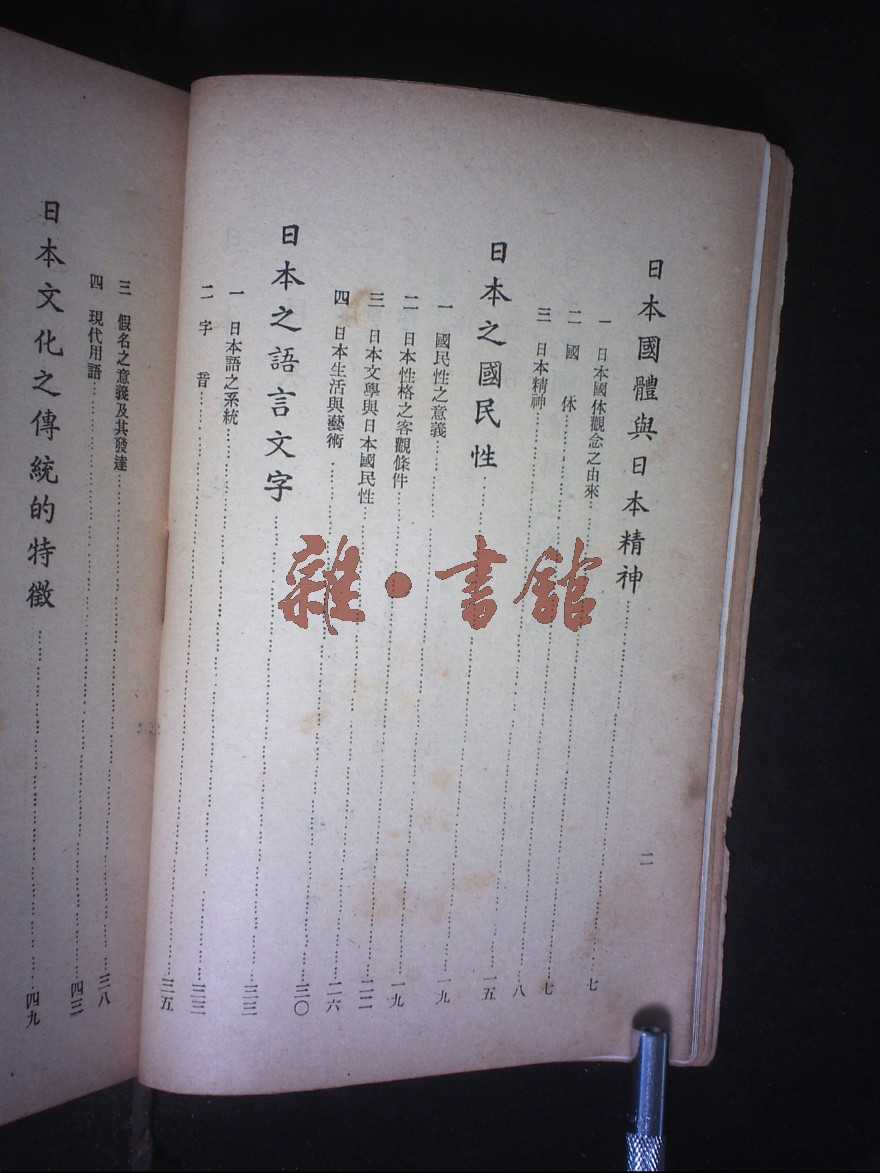 二
日本國體與日本精神……七
一 日本國体觀念之由來……七
二 國 体……八
三 日本精神……一五
日本之國民性……一九
一 國民性之意義……一九
二 日本性格之客觀條件……二二
三 日本文學與日本國民性……二六
四 日本生活與藝術……三〇
日本之語言文字……三三
一 日本語之系統……三三
二 字 音……三五
三 假名之意義及其發達……三八
四 現代用語……四三
日本文化之傳統的特徵……四九
雜·書館